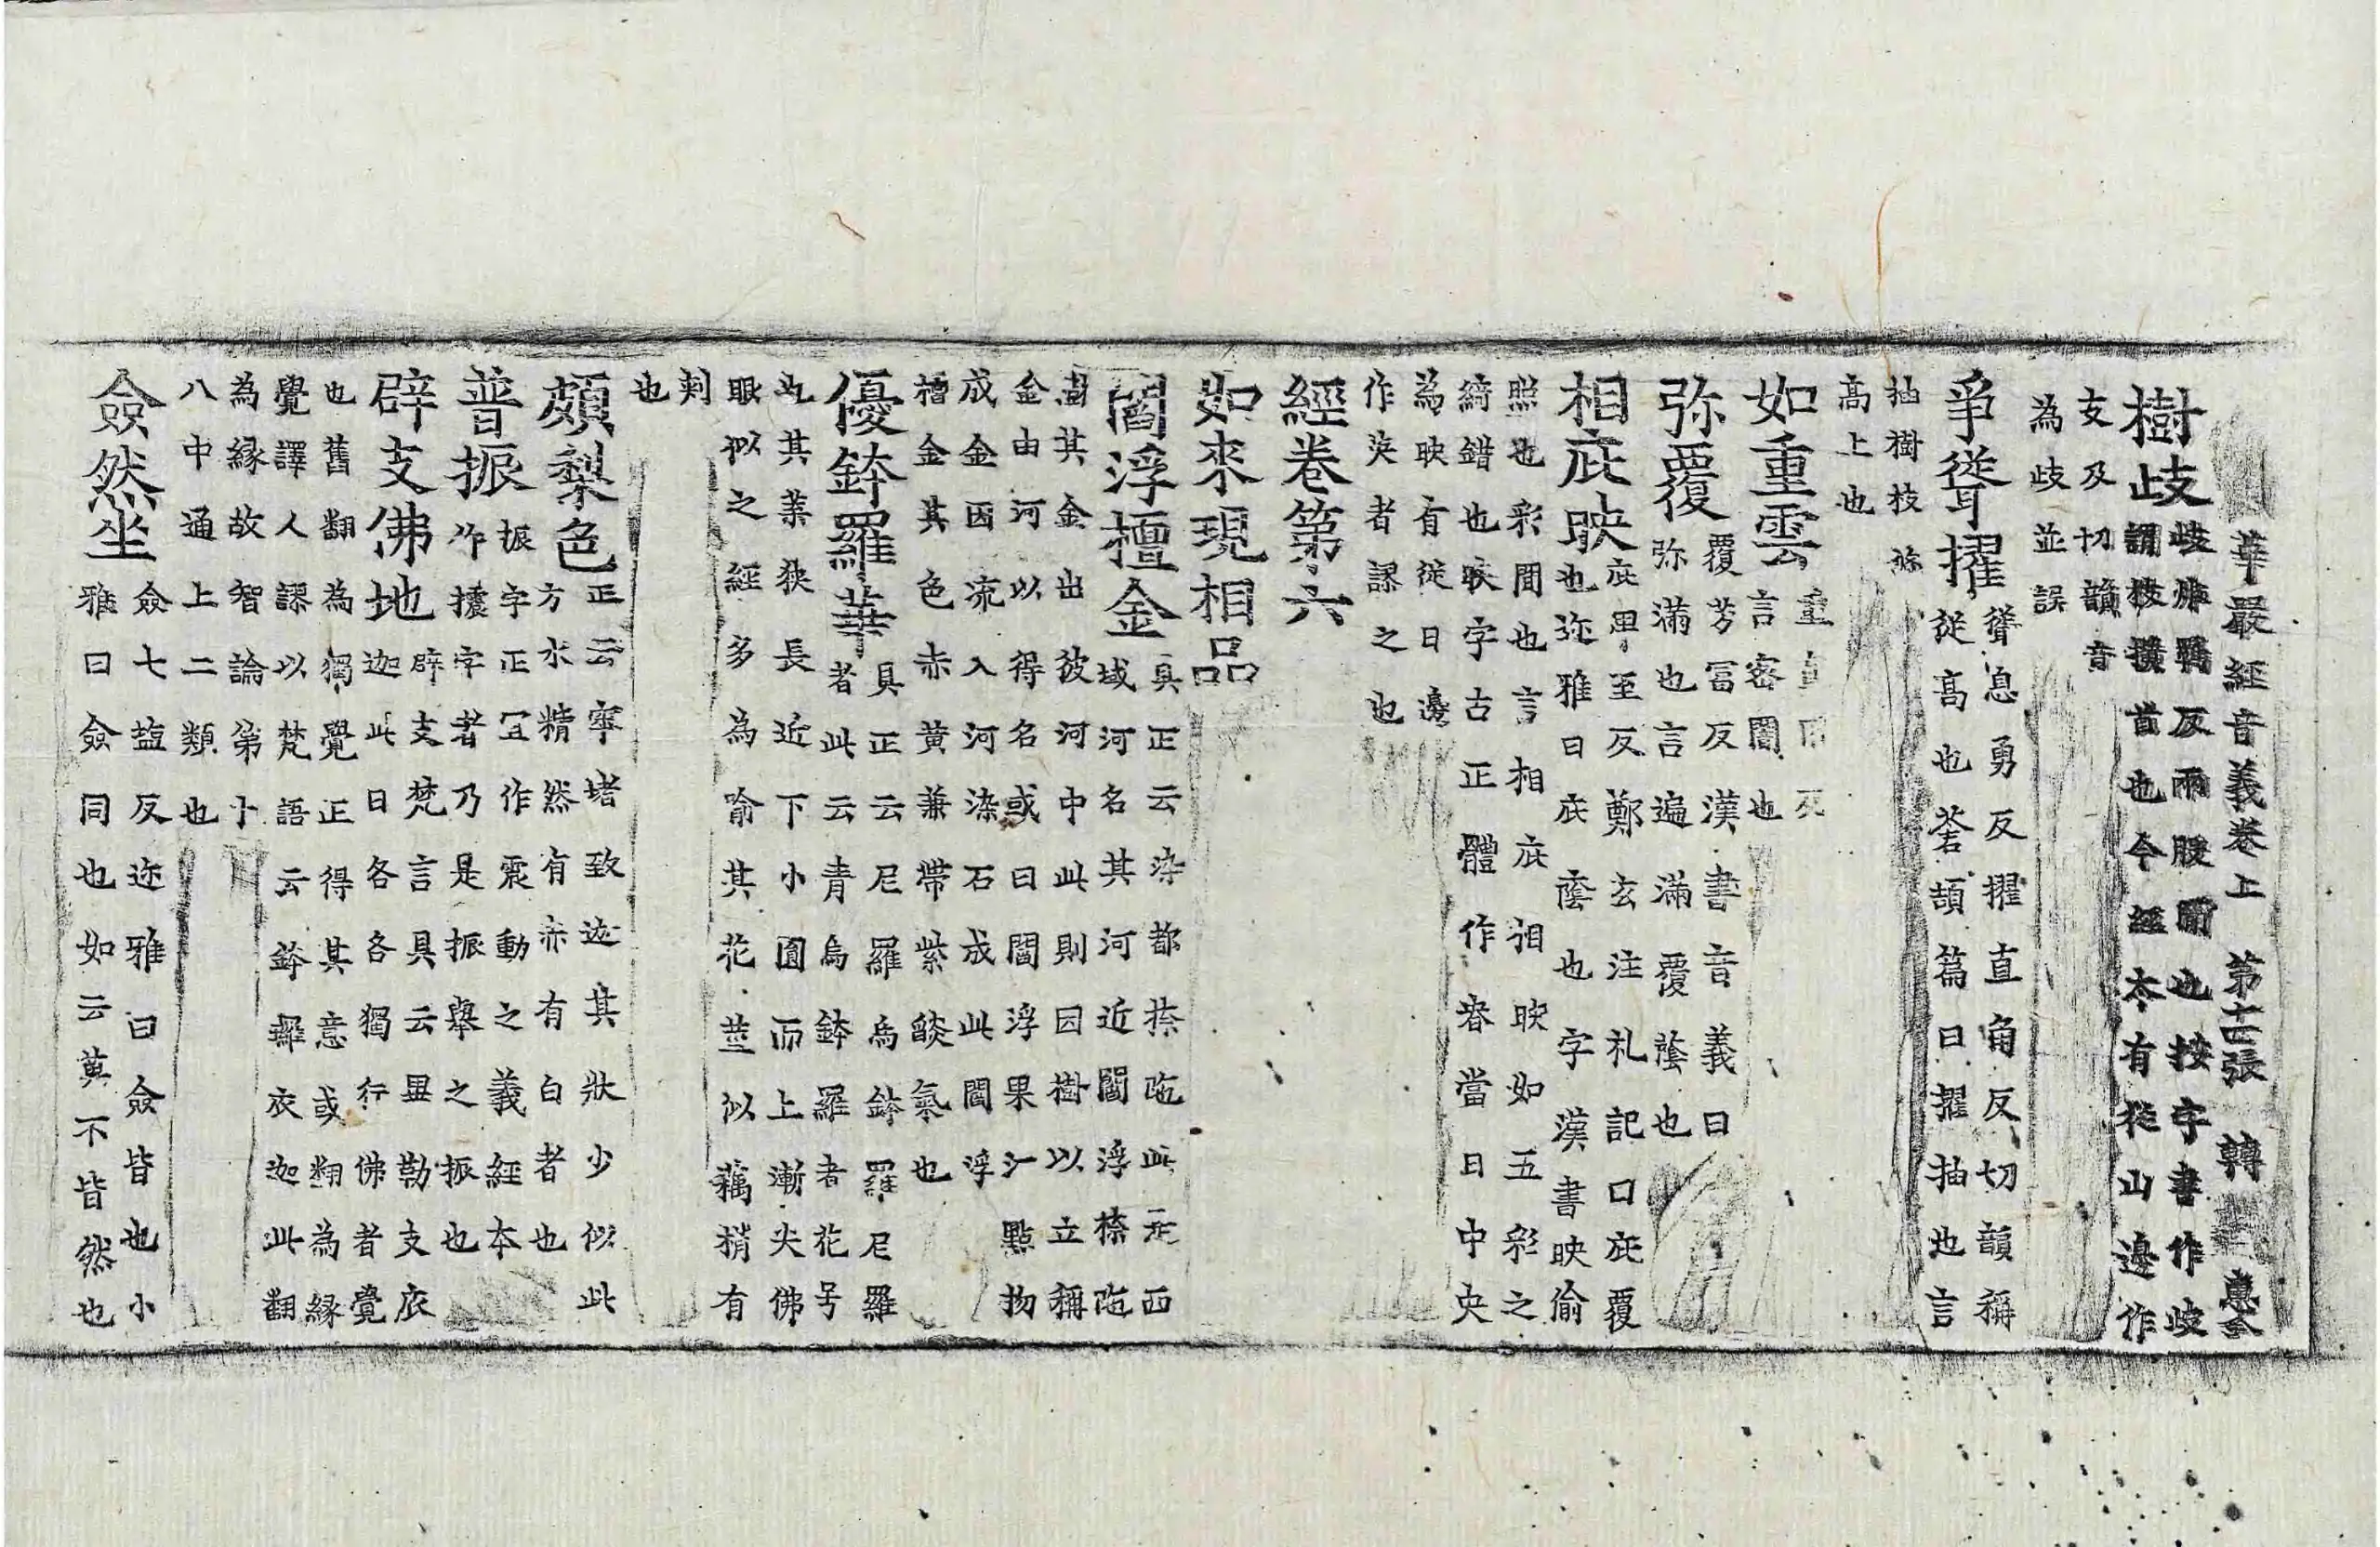 華嚴經音義卷上 第十二張 轉
樹歧 歧炸羈反兩股間也按字書作歧
謂枝橫首也今經本有從山邊作
支及切韻音
為歧並誤
爭聳擢 聳息勇反擢直角反切韻稱
從高也蒼頡篇曰擢抽也言
抽樹枝條
高上也
如重雲 重直
言密闇也
弥覆 覆芳富反漢書音義曰
弥滿也言遍滿覆蔭也
相庇映 庇卑至反鄭玄注礼記曰庇覆
也迩雅曰庇蔭也字漢書映偷
照也彩間也言相庇相映如五彩之
綺錯也映字古正體作㬐當日中央
為映有從日邊
作英者謬之也
經卷第六
如來現相品
閻浮檀金 具正云染都捺陁此是西
域河名其河近閻浮捺陁
樹其金出彼河中此則因樹以立稱
金由河以得名或曰閻浮果汁點物
成金因流入河染石成此閻浮
檀金其色赤黃兼帶紫燄氣也
優鉢羅華 具正云尼羅烏鉢羅尼羅
者此云青烏鉢羅者花号
也其葉狹長近下小圓而上漸尖佛
眼似之經多為喻其花莖似藕梢有
刺
也
頗梨色 正云窣堵致迦其狀少似此
方水精然有赤有白者也
普振 振字正冝作震動之義經本
作㨲字者乃是振舉之振也
辟支佛地 辟支梵言具云畢勒支底
迦此曰各各獨行佛者覺
也舊翻為獨覺正得其意或翻為緣
覺譯人謬以梵語云鉢羅底迦此翻
為緣故智論第十
八中通上二類也
僉然坐 僉七塩反迩雅曰僉皆也小
雅曰僉同也如云莫不皆然也